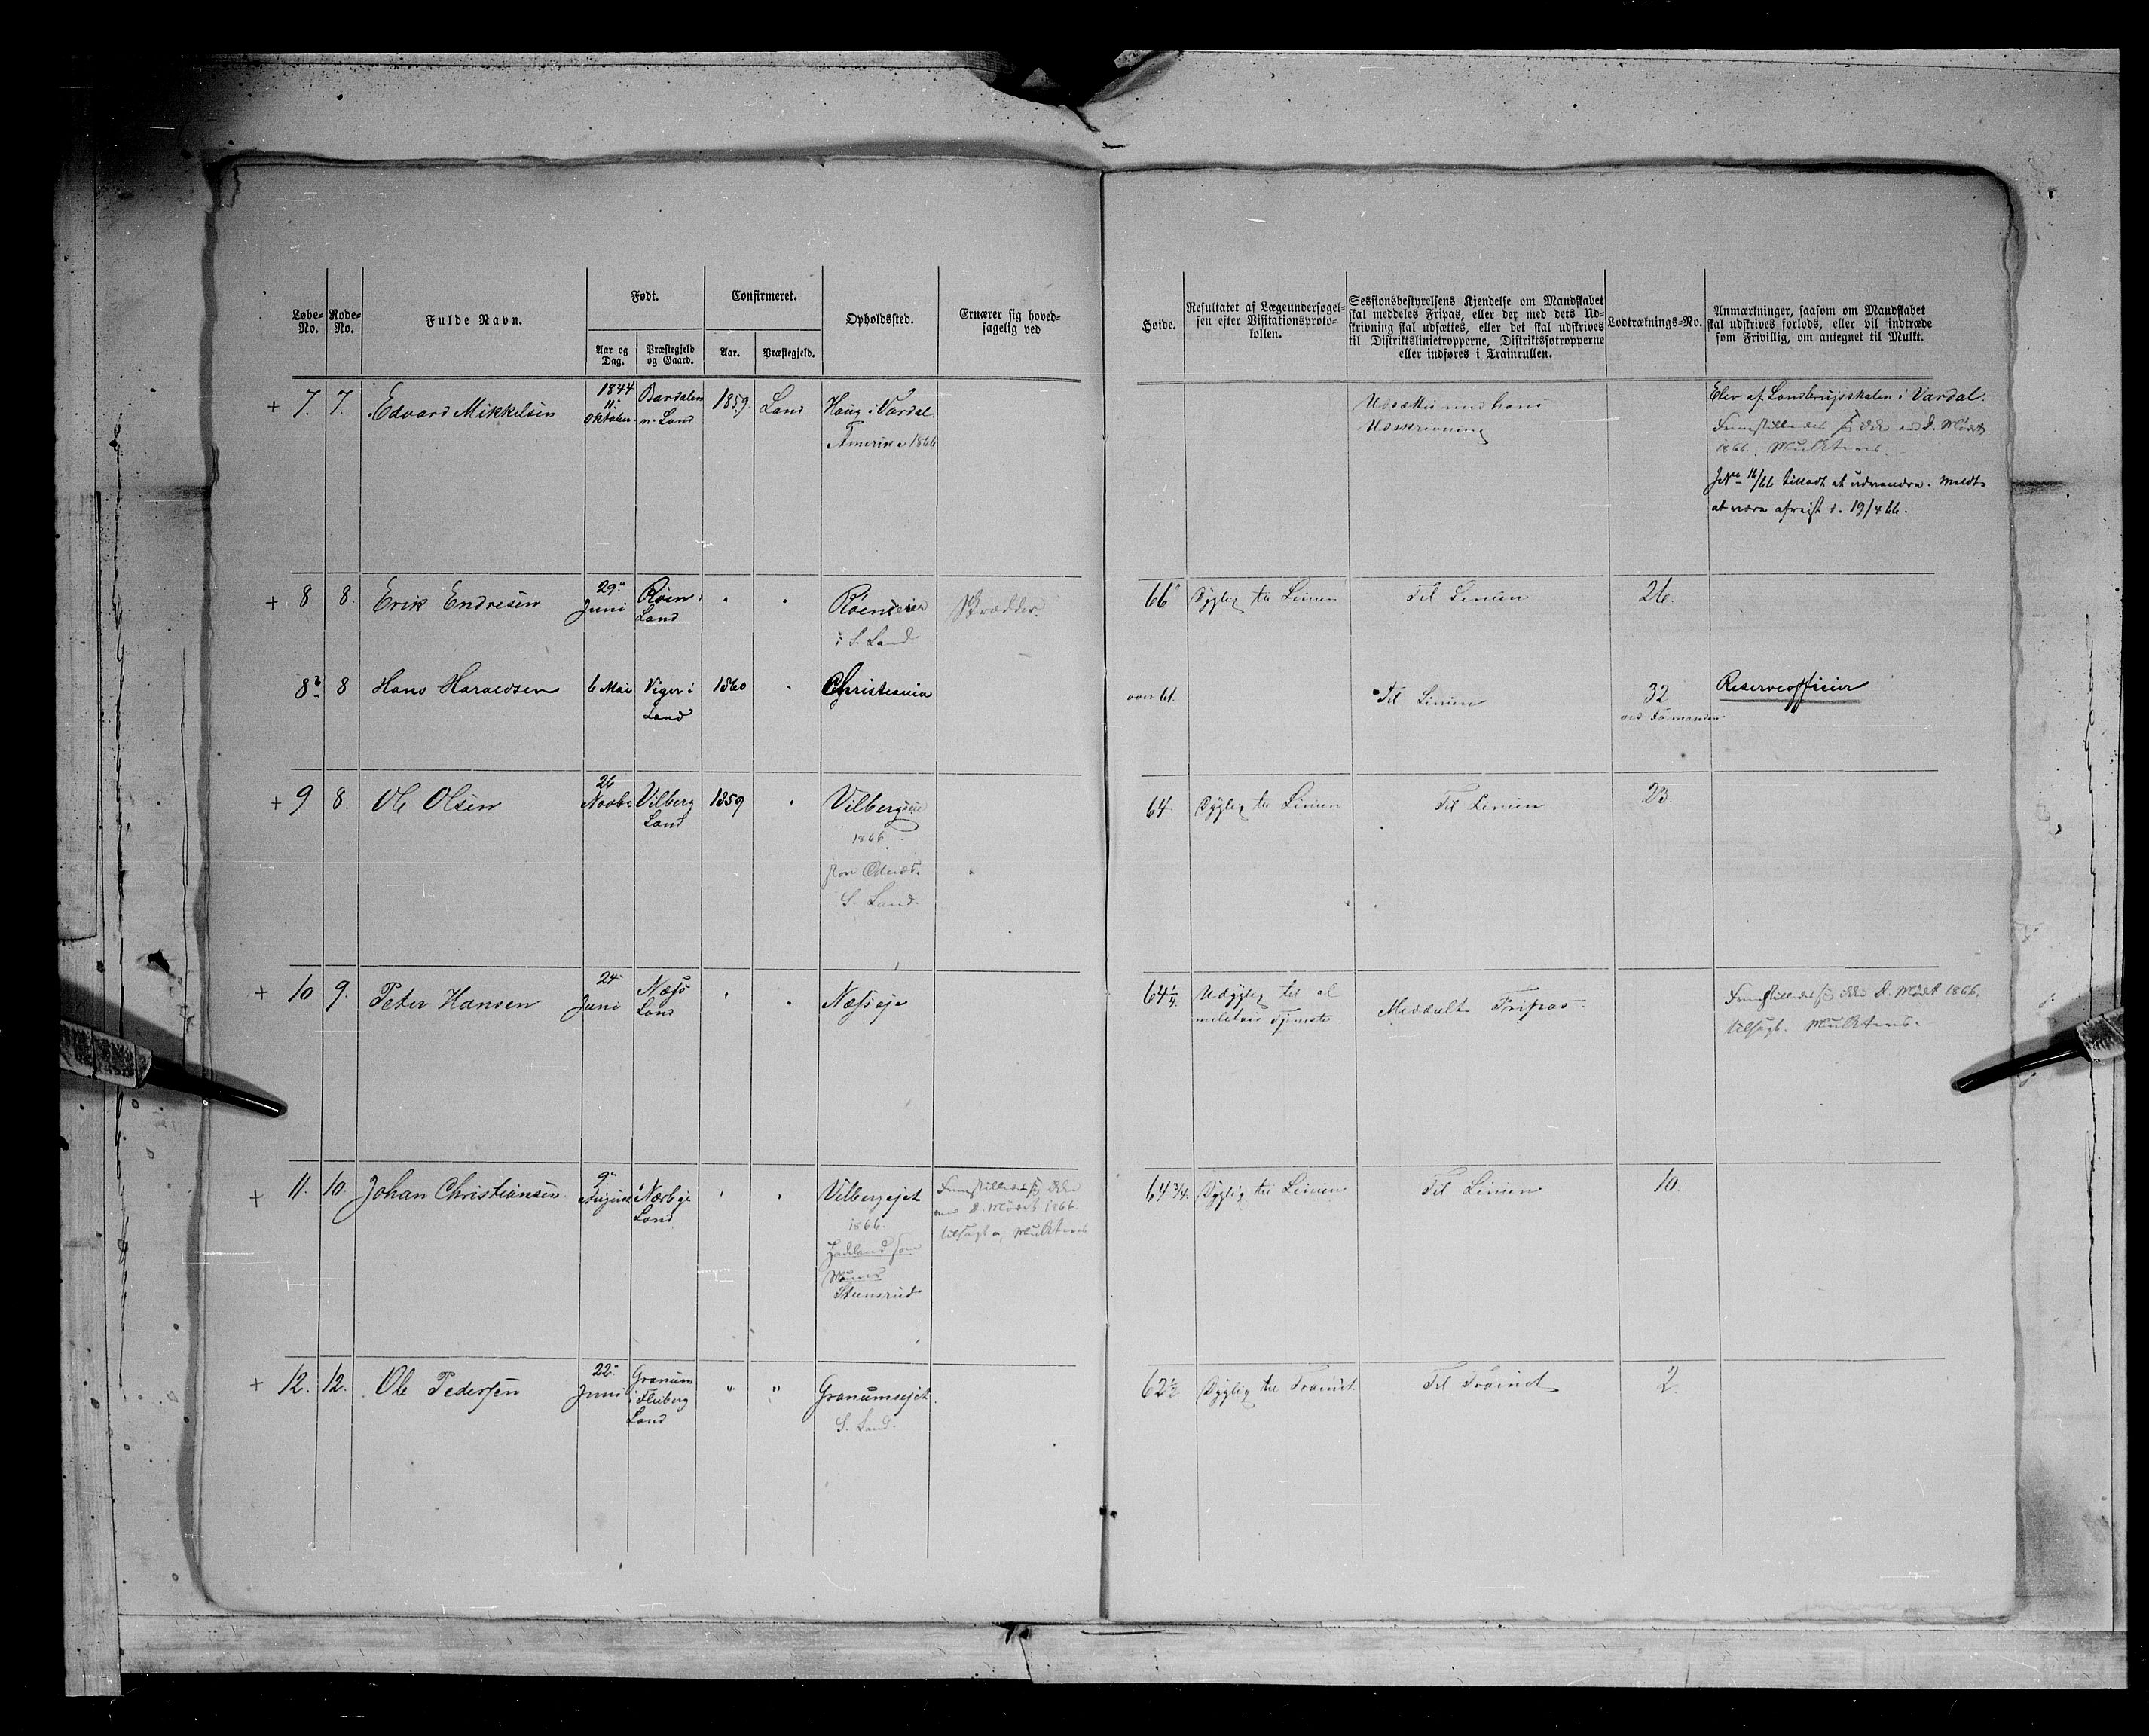 Løbe-No.
Rode-No.
Fulde Navn.
Født.
Aar og Dag.
Præstegjeld og Gaard.
Confirmeret.
Aar.
Præstegjeld.
Opholdssted.
Ernærer sig hoved-
sagelig ved
Høide.
Resultatet af Lægeundersøgel-
sen efter Visitationsproto-
kollen.
Sessionsbestyrelsens Kjendelse om Mandskabet
skal meddeles Fripas, eller der med dets Ud-
skrivning skal udsættes, eller det skal udskrives
til Distriktslinietropperne, Distriktsfotropperne
eller indføres i Trainrullen.
Lodtræknings-No.
Anmærkninger, saasom om Mandskabet
skal udskrives forlods, eller vil indtræde
som Frivillig, om antegnet til Mulkt.
+ 7. 7. Edvard Mikkelsen
1844
11te
Oktober
Bardalen
n. Land
1859. Land
Haug i Vardal.
Amerika 1866
Udsættes med hans
Udskrivning
Elev af Landbrugsskolen i Vardal.
Fremstillede sig ikke ved D. Mødet
1866. Mulkteres.
JNo 16/66 tilladt at udvandre. Meldt
at være afreist d. 19/4 66.
+ 8 8. Erik Endresen
29.
Juni
Røen i
Land
" "
Røenseie
i S. Land
Skrædder.
66" Dygtig til Linien Til Linien 26.
8b 8 Hans Haraldsen 6 Mai
Viger i
Land
1860 "
Christiania
over 61. Til Linien 32
ved Formanden
Reserveofficier
+ 9 8. Ole Olsen
26
Novbr
Vilberg
Land
1859 "
Vilbergseie
1866.
paa Odnæs.
S. Land.
64. Dygtig til Linien Til Linien 23.
+ 10 9. Peter Hansen
24
Juni
Næss
Land
" "
Næsseje
64 1/4. Udygtig til al
militær Tjeneste
Meddelt Fripas
Fremstillede sig ikke D. Mødet 1866.
tilsagt. Mulkteres.
+ 11. 10. Johan Christiansen
9
August
Nærbye
Land.
" "
Vilbergejet
1866.
Hadeland som
Stensrud
Fremstillede sig ikke
ved D. Mødet 1866.
tilsagt, Mulkteres
64 3/4. Dygtig til Linien Til Linien 10.
+ 12. 12. Ole Pedersen
22
Juni
Granum
i Fluberg
Land
" "
Granumsejet.
S. Land.
62 1/2 Dygtig til Trainet Til Trainet 2.